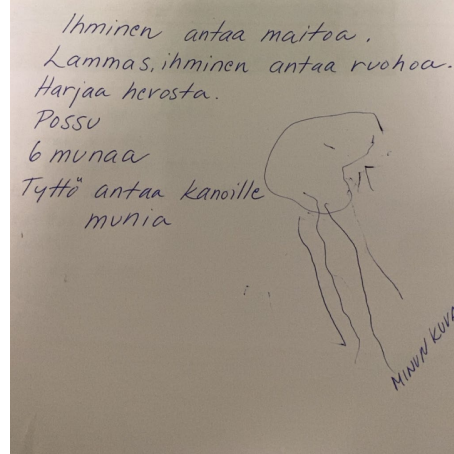 Ihminen antaa maitoa.
Lammas, ihminen antaa ruohoa.
Harjaa hevosta.
Possu
6 munaa
Tyttö antaa kanoille
munia
MINUN KUVA